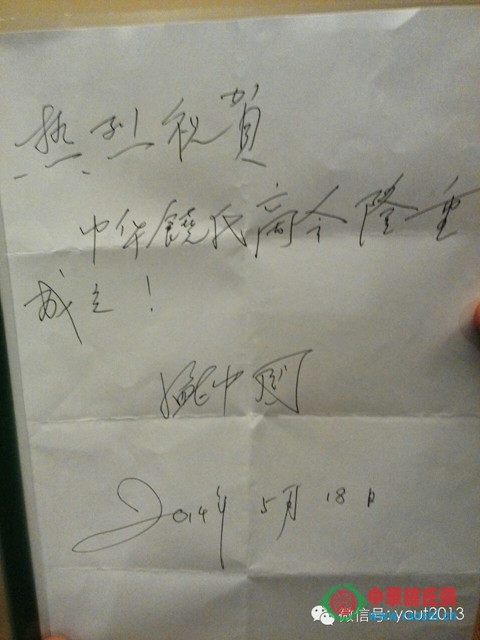 热烈祝賀
中华饒氏商会隆重
成立！
2014年 5月 18日
中华饶氏网
微信号: ycut2013